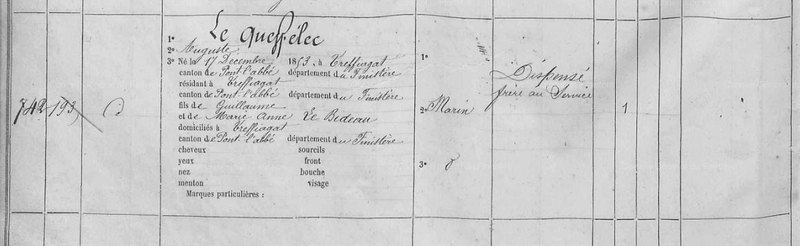 1° Le Queffélec
2° Auguste
3° Né le 17 Décembre 1853, à Treffiagat
canton de Pont l'abbé département du Finistère
résidant à Treffiagat
canton de Pont l'abbé département du Finistère
fils de Guillaume
et de Marie Anne Le Bideau
domiciliés à Treffiagat
canton de Pont l'abbé département du Finistère
cheveux sourcils
yeux front
nez bouche
menton visage
Marques particulières :
742 193 d
1°
2° Marin
3° 0
Dispensé
frère au Service
1